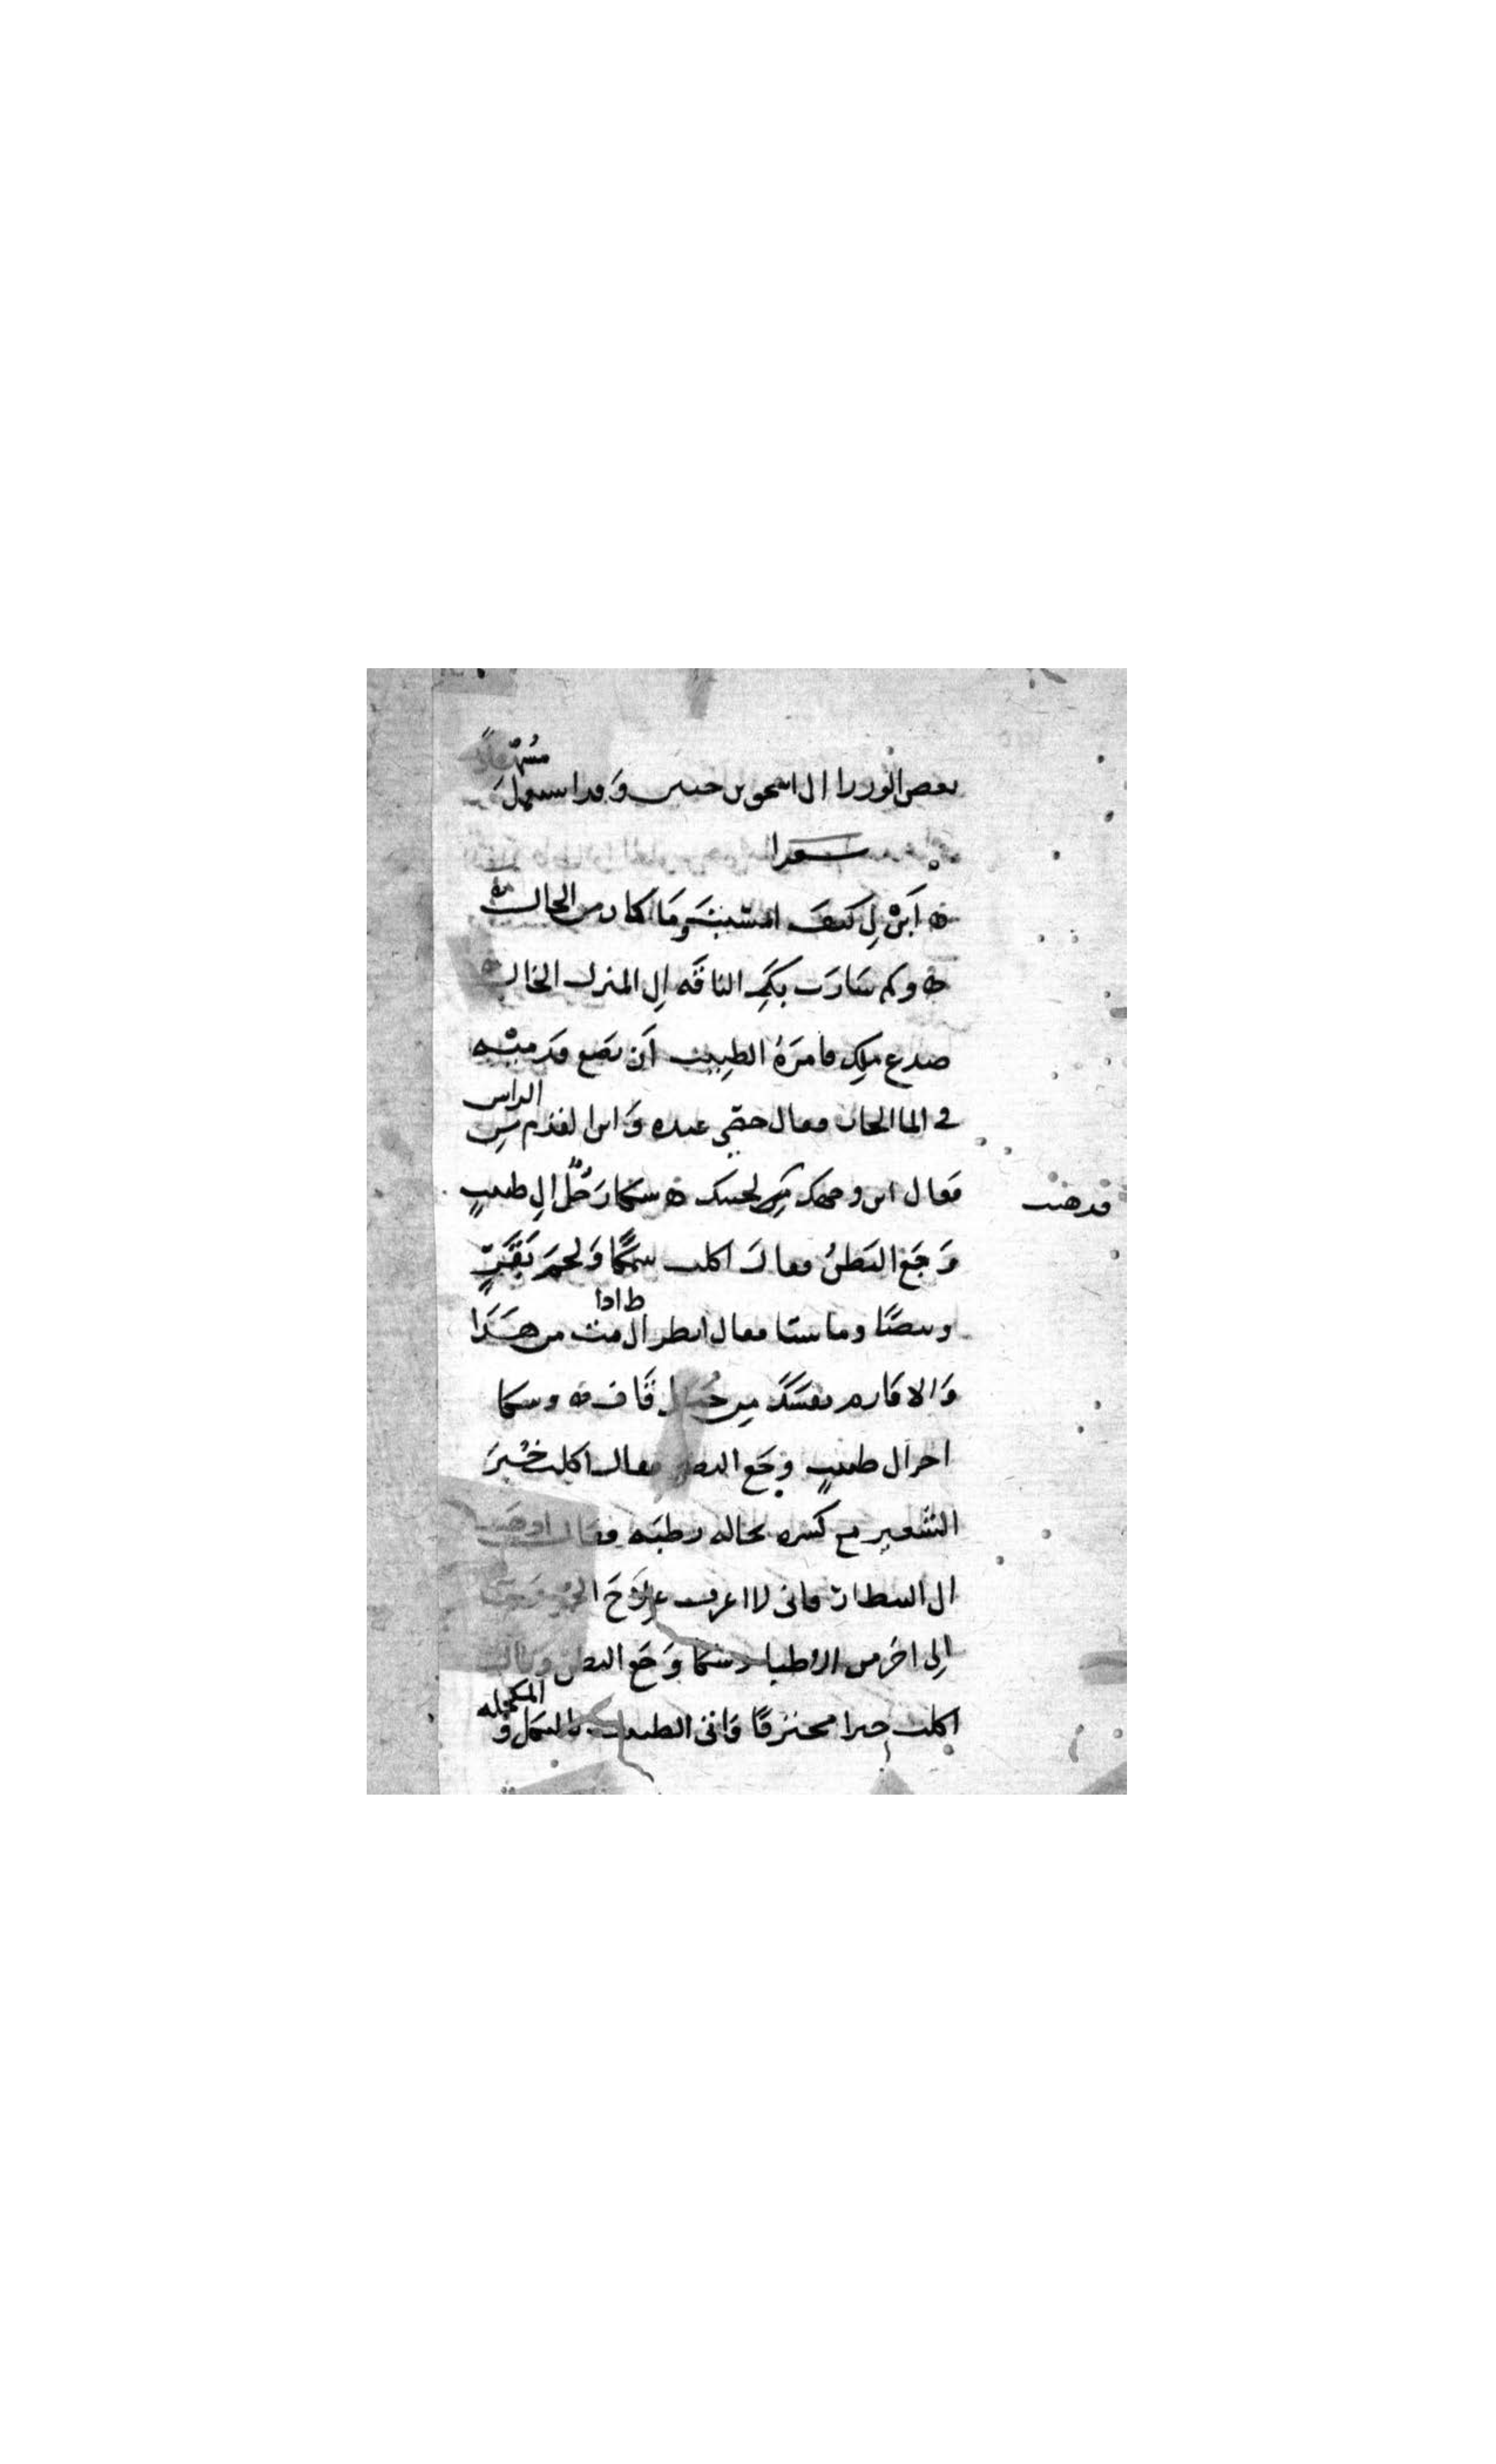 بعض الوزرا الى اسحق بن حنين وقد استعمل مسهلاً
شعرا
أَبِنْ لي كيفَ امسَيْتَ وَمَا كان من الحال
وكم سَارَت بِكَ الناقَه إلى المنزل الخالي
صدع ملِك فأمرَهُ الطبيب أَن يَضع قدميْه
في الما الحار فقال خصي عنده وَاين القدم من الراس
فقال اين وجهك من لحيتك شكا رَجُلٌ الى طبيب
وَجَعَ البَطنُ فقالَ اكلت سمَكًا وَلحمَ بَقَرٍ
وبيضًا وماستا فقال انظر ان مت من هَذَا
وَالا فارم نفسَكَ من جَبَل قَاف وشكا
اخر الى طبيبٍ وَجَع البطن فقال اكلت خُبْزَ
الشعير مع نخاله رطبَه فقال اذهب
الى البيطار فاني لا اعرف علاَجَ
إلى اخر من الأطباء شكا وَجَع البطن وقال
اكلت خبزا محترقًا فأتى الطبيب بالميل وَ المكحله
قد هنت